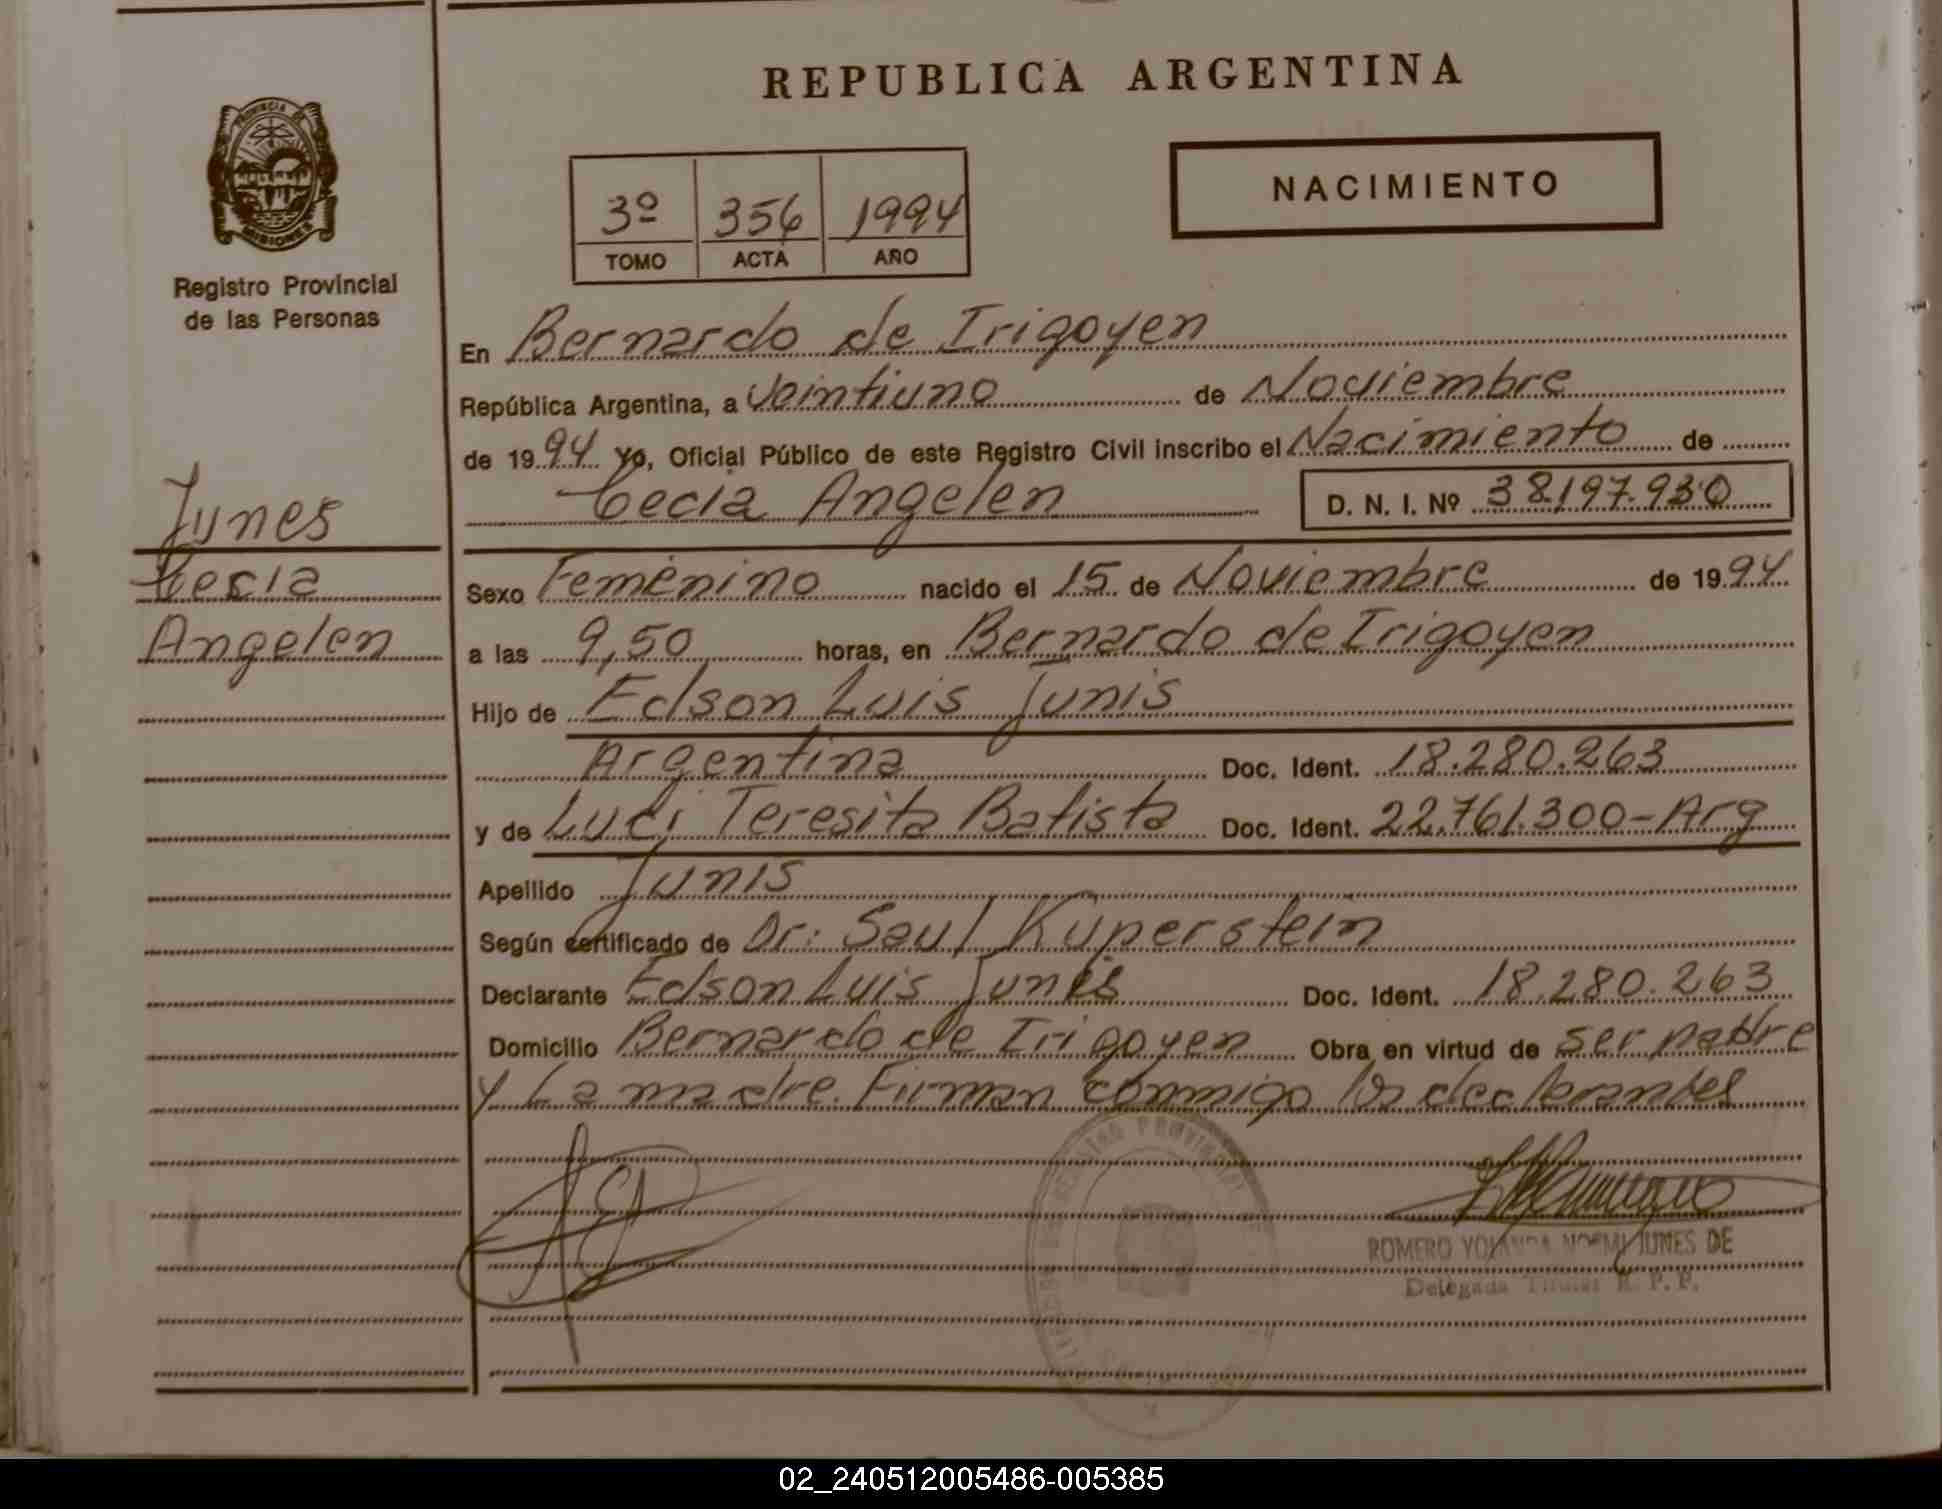 REPUBLICA ARGENTINA
PROVINCIA DE
MISIONES
Registro Provincial
de las Personas
3º 356 1994
TOMO ACTA AÑO
NACIMIENTO
En Bernardo de Irigoyen
República Argentina, a Veintiuno de Noviembre
de 1994 Yo, Oficial Público de este Registro Civil inscribo el Nacimiento de
Cecia Angelen D. N. I. Nº 38.197.930
Junes
Cecia
Angelen
Sexo Femenino nacido el 15 de Noviembre de 1994
a las 9,50 horas, en Bernardo de Irigoyen
Hijo de Edson Luis Junis
Argentina Doc. Ident. 18.280.263
y de Luci Teresita Batista Doc. Ident. 22.761.300-Arg
Apellido Junis
Según certificado de Dr: Saul Kuperstein
Declarante Edson Luis Junes Doc. Ident. 18.280.263
Domicilio Bernardo de Irigoyen Obra en virtud de ser padre
y La madre. Firman conmigo los declarantes
ROMERO YOLANDA NOEMI JUNES DE
Delegada Titular R. P. P.
02_240512005486-005385